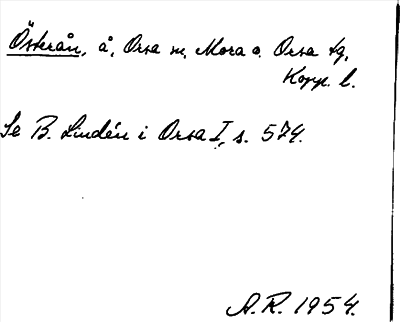 Österån, å, Orsa sn, Mora o. Orsa tg,
Kopp. l.
Se B. Lindén i Orsa I, s. 574.
A.R. 1954.